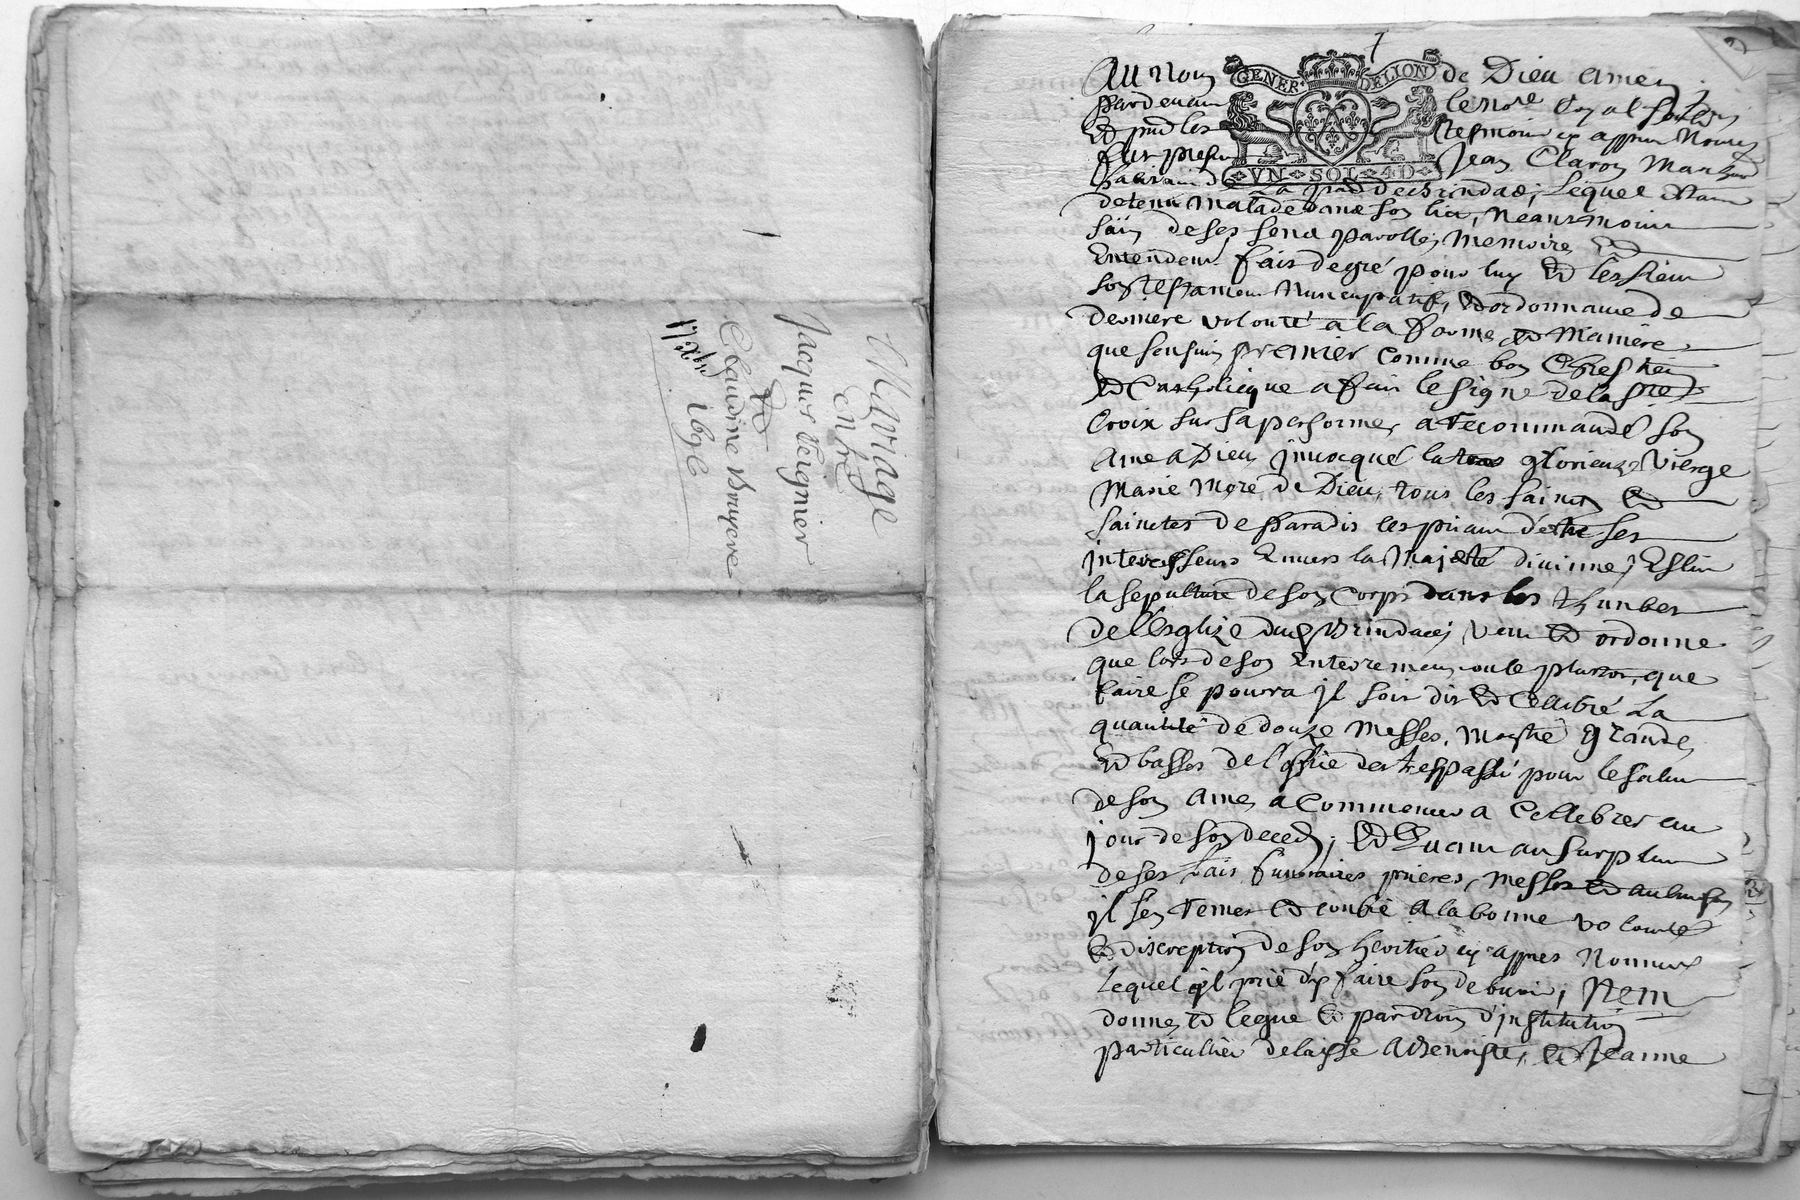 Mariage
entre
Jacques Veignier
et
Claudine Bruyere
17 xbre 1696
GENER. DELION
VN SOL 4D
Au Nom de Dieu amen
Pardevant le nore Royal
et pnt les tesmoins cy appres Nomes
fut present Jean Claron Marchand
habitant de la parr de Brindas, lequel estant
detenu Malade dans son lict, Neantmoins
sain de ses sens parolle, memoire et
Entendemt. faict de gré pour luy et les siens
son testament Nuncupatif, et ordonnance de
derniere volonté a la forme et Maniere
que sensuit premier comme bon Chrestien
et Catholicque a faict le signe de la Ste
Croix sur sa personne, a recommandé son
Ame a Dieu, jnvocqué la glorieuze Vierge
Marie Mere de Dieu, tous les saincts et
sainctes de Paradis les priant d'etre ses
jntercesseurs Envers la Majesté divinne, Eslit
la sepulture de son Corps dans les thunbes
de l'Esglize dud Brindas, veut et ordonne
que lors de son Enterrement ou le plustot, que
faire se pourra jl soit dit et Cellebré La
quantité de douze Messes, grandes
et basses de l'office des trespassé pour le salut
de son Ame, a Commencer a Cellebrer au
jour de son deced, et Quant au surplus
de ses frais funeraires prieres, Messes et aulmosn
jl s'en remet et confie a la bonne volonté
et discreption de son heritier cy appres Nommé
lequel jl prie d'y faire son debvoir, Item
donne et legue et par droit d'jnstitution
particulliere delaisse a Benoiste, et Jeanne